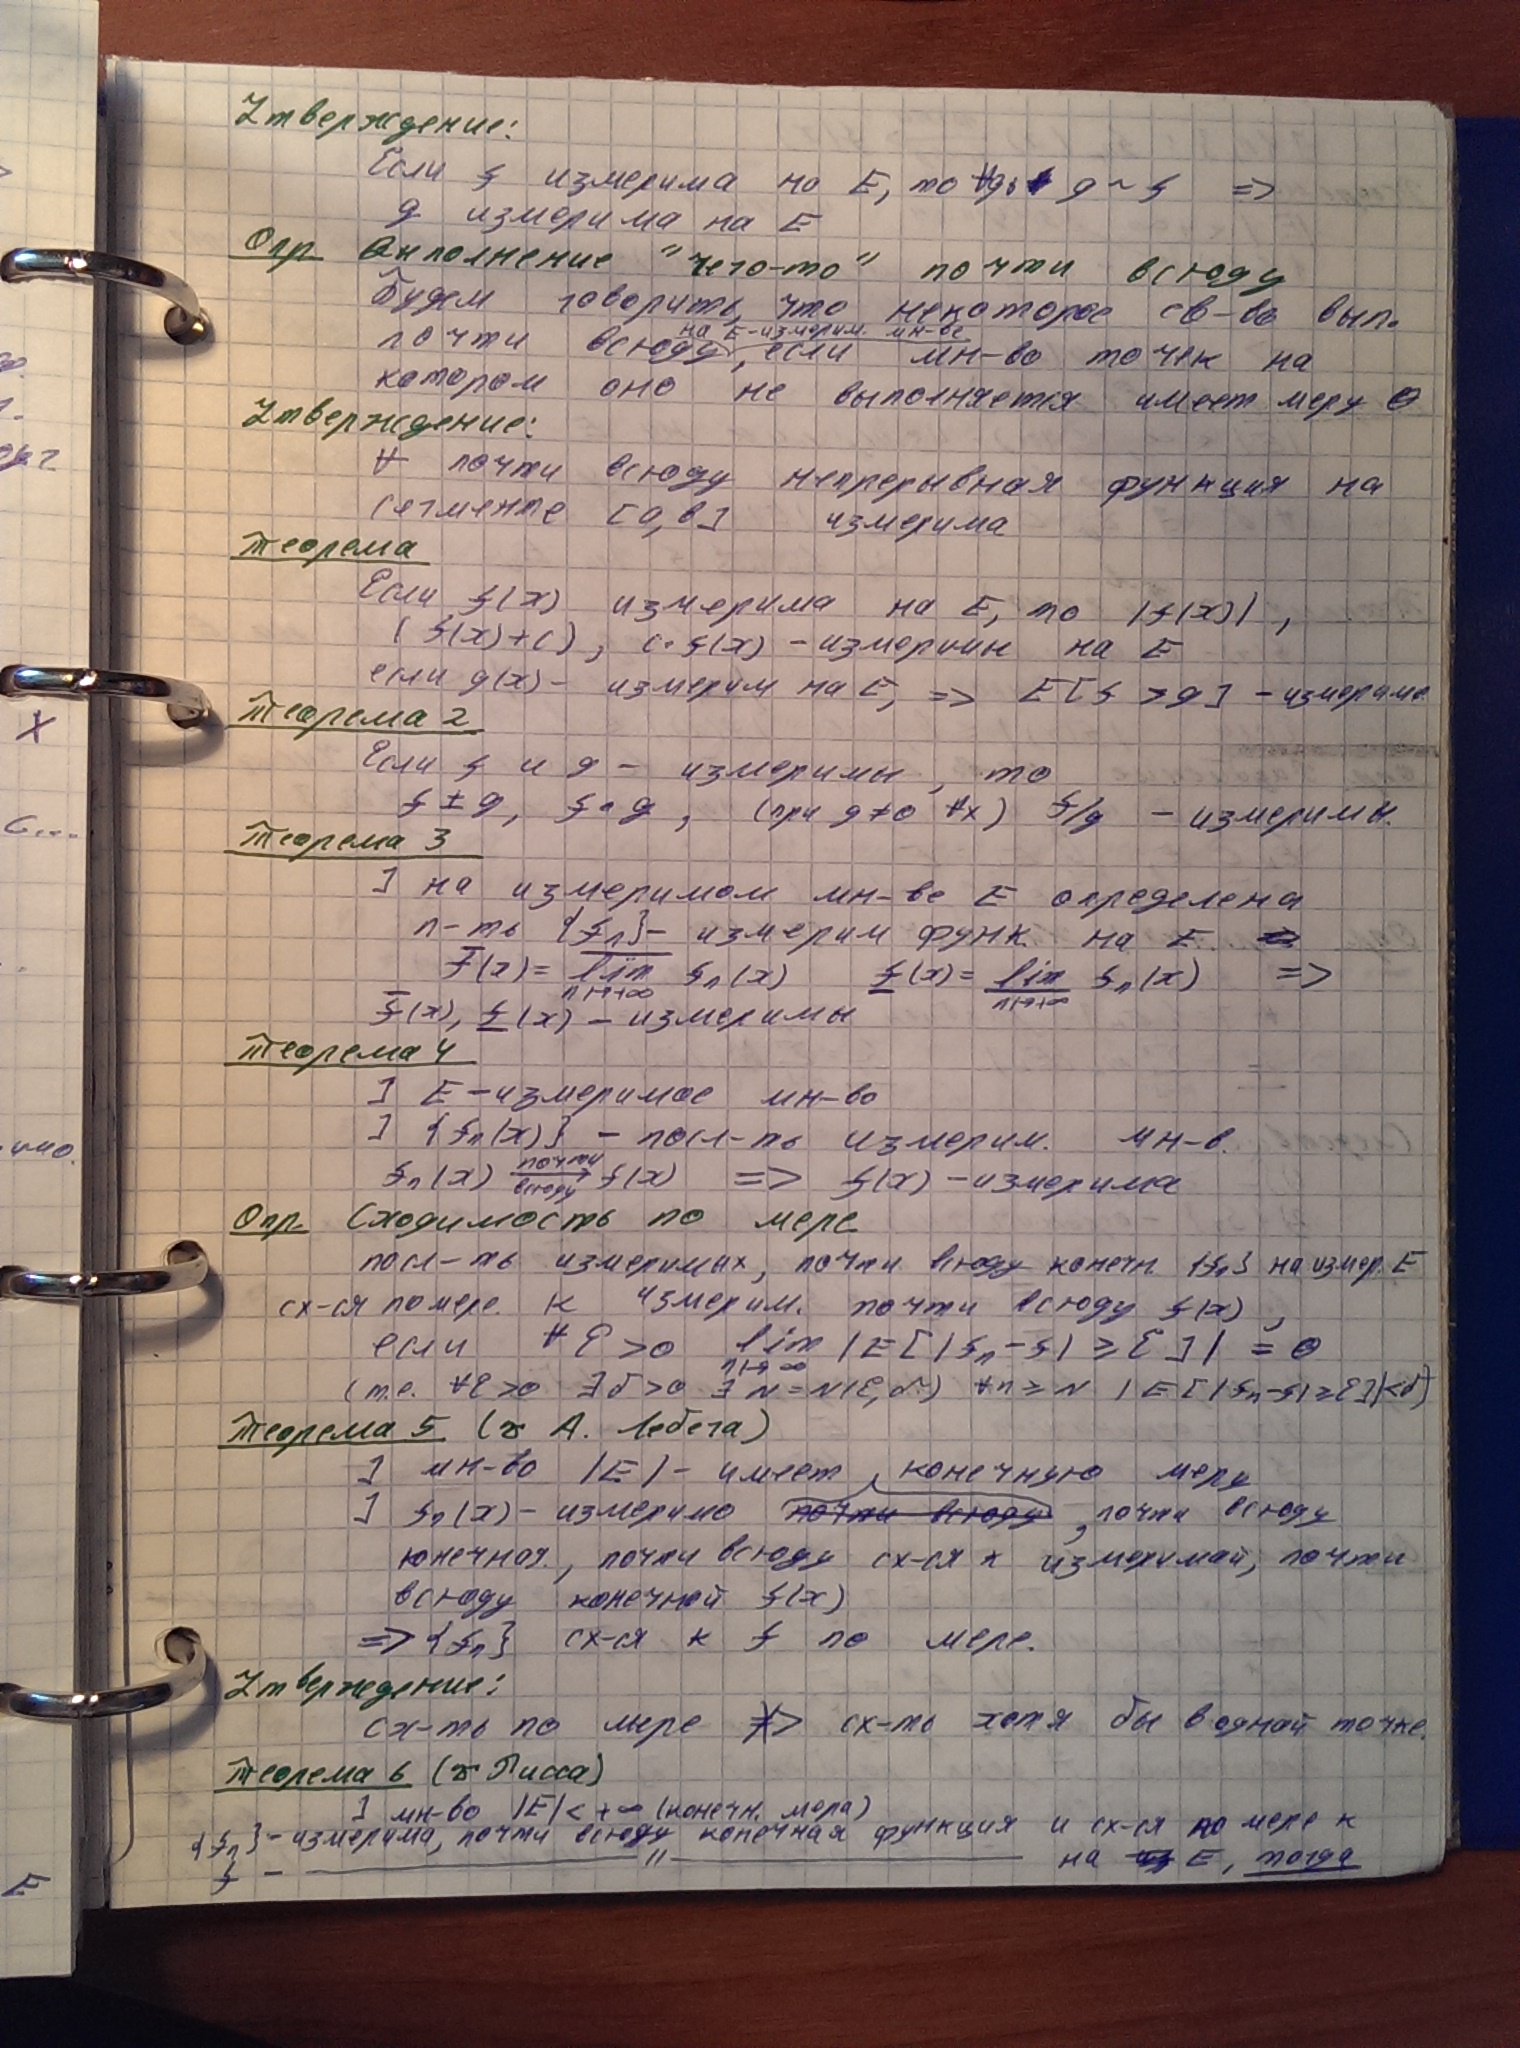 Утверждение:
Если f измерима на E, то ∀g: g ~ f =>
g измерима на E
Опр. Выполнение "чего-то" почти всюду
Будем говорить, что некоторое св-во вып.
почти всюду на E-измерим. мн-ве, если мн-во точек на
котором оно не выполняется имеет меру 0
Утверждение:
∀ почти всюду непрерывная функция на
сегменте [a,b] измерима
Теорема
Если f(x) измерима на E, то |f(x)|,
(f(x)+c), c·f(x) - измеримы на E
если g(x) - измерим на E, => E[f > g] - измерима
Теорема 2
Если f и g - измеримы, то
f ± g, f·g, (при g≠0 ∀x) f/g - измеримы.
Теорема 3
] на измеримом мн-ве E определена
п-ть {fₙ} - измерим функ. на E.
f̅(x) = l̅i̅m̅ n→+∞ fₙ(x) f̲(x) = l̲i̲m̲ n→+∞ fₙ(x) =>
f̅(x), f̲(x) - измеримы
Теорема 4
] E - измеримое мн-во
] {fₙ(x)} - посл-ть измерим. мн-в.
fₙ(x) почти всюду → f(x) => f(x) - измерима
Опр. Сходимость по мере
посл-ть измеримых, почти всюду конечн. {fₙ} на измер. E
сх-ся по мере к измерим. почти всюду f(x),
если ∀ℰ>0 lim n→∞ |E[|fₙ-f| ≥ ℰ]| = 0
(т.е. ∀ℰ>0 ∃δ>0 ∃N=N(ℰ,δ) ∀n≥N |E[|fₙ-f|≥ℰ]|<δ)
Теорема 5 (т А. Лебега)
] мн-во |E| - имеет конечную меру
] fₙ(x) - измеримо почти всюду, почти всюду
конечная, почти всюду сх-ся к измеримой, почти
всюду конечной f(x)
=> {fₙ} сх-ся к f по мере.
Утверждение:
сх-ть по мере ≠> сх-ть хотя бы в одной точке.
Теорема 6 (т Рисса)
] мн-во |E| < +∞ (конечн. мера)
{fₙ} - измерима, почти всюду конечная функция и сх-ся по мере к
f - ——— " ——— на E, тогда